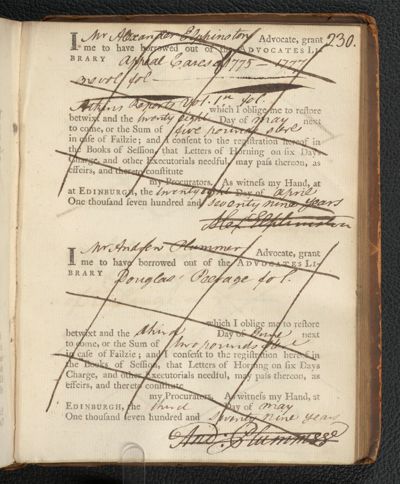 230.
I Mr Alexander Elphinston Advocate, grant
me to have borrowed out of the ADVOCATES LI-
BRARY Appeal Cases 1775 - 1777
vol fol
Atkins Reports Vol. 1st fol.
which I oblige me to restore
betwixt and the twenty eight Day of May next
to come, or the Sum of five pounds ster
in case of Failzie; and I consent to the registration hereof in
the Books of Session, that Letters of Horning on six Days
Charge, and other Executorials needful, may pass thereon, as
effeirs, and thereto constitute
my Procurators. As witness my Hand, at
at EDINBURGH, the twenty Day of April
One thousand seven hundred and seventy nine years
Alex Elphinston
I Mr Andrew Plummer Advocate, grant
me to have borrowed out of the ADVOCATES LI-
BRARY Douglas' Peerage fol.
which I oblige me to restore
betwixt and the third Day of June next
to come, or the Sum of two pounds
in case of Failzie; and I consent to the registration hereof in
the Books of Session, that Letters of Horning on six Days
Charge, and other Executorials needful, may pass thereon, as
effeirs, and thereto constitute
my Procurators. As witness my Hand, at
EDINBURGH, the third Day of May
One thousand seven hundred and seventy nine years
And. Plummer